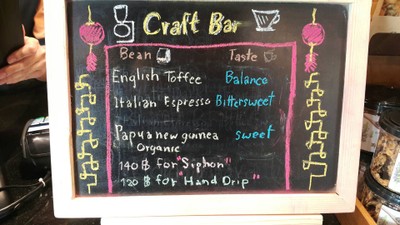 Craft Bar
Bean Taste
English Toffee Balance
Italian Espresso Bittersweet
Papua new guinea sweet
Organic
140 ฿ for "Siphon"
120 ฿ for "Hand Drip"